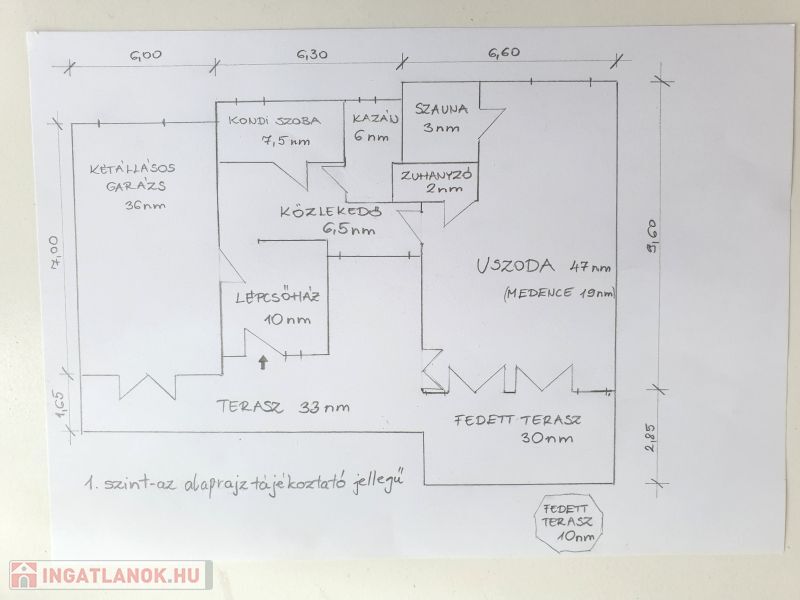 6,00
6,30
6,60
KONDI SZOBA
7,5nm
KAZÁN
6nm
SZAUNA
3nm
KÉTÁLLÁSOS
GARÁZS
36nm
ZUHANYZÓ
2nm
KÖZLEKEDŐ
6,5nm
7,00
9,60
USZODA 47nm
(MEDENCE 19nm)
LÉPCSŐHÁZ
10nm
1,65
TERASZ 33nm
FEDETT TERASZ
30nm
2,85
1. szint-az alaprajz tájékoztató jellegű
FEDETT
TERASZ
10nm
INGATLANOK.HU